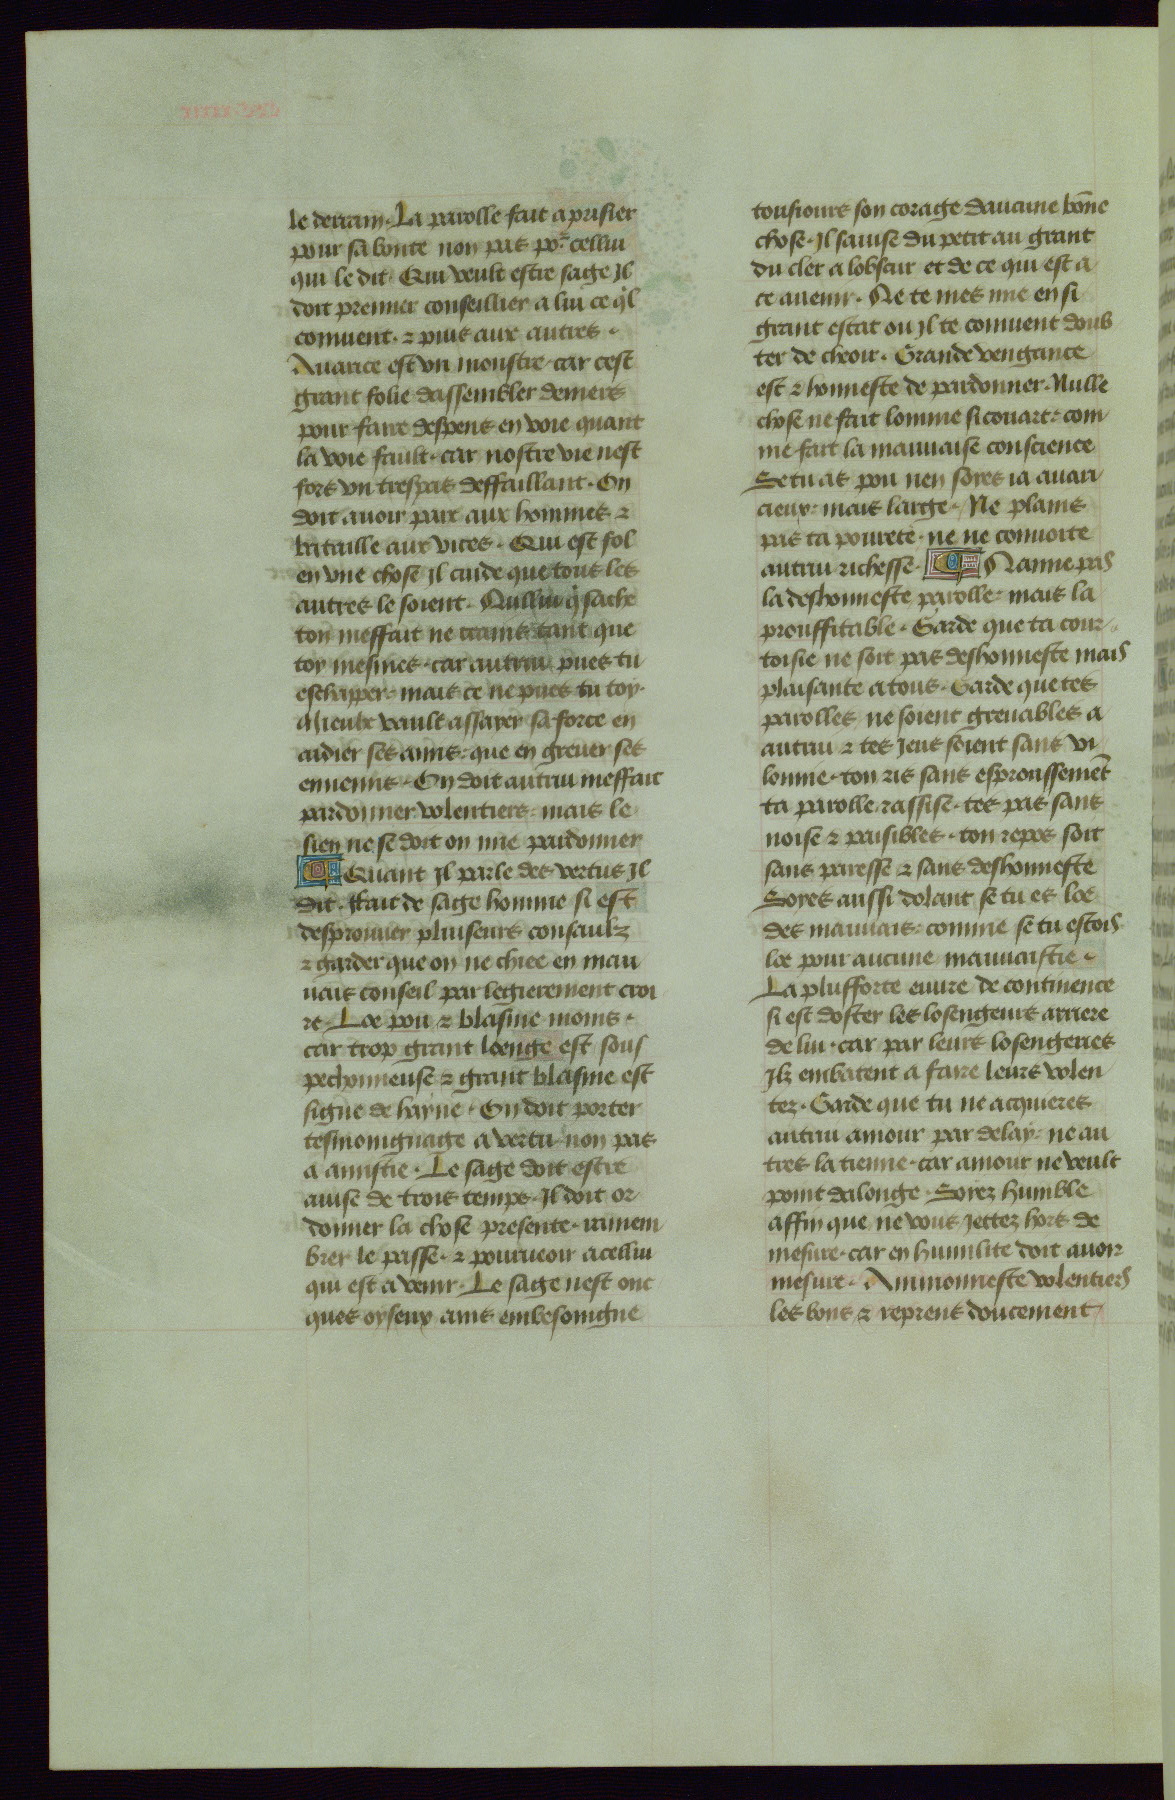 le derrain. La parolle fait a prisier
pour sa bonte non pas por cellui
qui le dit. Qui veult estre sage Jl
doit premier conseillier a lui ce q̇l
conuient. ⁊ puis aux autres.
Auarice est vn monstre. car cest
grant folie dassembler deniers
pour faire despens en voie quant
la voie fault. car nostre vie nest
fors vn trespas deffaillant. On
doit auoir paix aux hommes ⁊
bataille aux vices. Qui est fol
en vne chose Jl cuide que tous les
autres le soient. Nullui q̇ sache
ton meffait ne crains tant que
toy mesmes. car autrui pues tu
eschapper. mais ce ne pues tu toy.
Mieulx vault assayer sa force en
aidier ses amis: que en greuer ses
ennemis. On doit autrui meffait
pardonner volentiers. mais le
sien ne se doit on mie pardonner
Quant Jl parle des vertus Jl
dit. Fait de sage homme si est
desprouuer pluiseurs consaulz
⁊ garder que on ne chiee en mau
uais conseil par legierement croi
re. Loe pou ⁊ blasme moins.
car trop grant loenge est sous
pechonneuse ⁊ grant blasme est
signe de hayne. On doit porter
tesmoingnage a vertu non pas
a amistie. Le sage doit estre
auise de trois temps. Jl doit or
donner la chose presente. ramem
brer le passe. ⁊ pourueoir a cellui
qui est a venir. Le sage nest onc
ques oyseux ains embesoingne
tousiours son corage daucune bōne
chose. Jl sauise du petit au grant
du cler a lobscur et de ce qui est a
ce auenir. Ne te mes mie en si
grant estat ou Jl te conuient doub
ter de cheoir. Grande vengance
est ⁊ honneste de pardonner. Nulle
chose ne fait lomme si couart: com
me fait la mauuaise conscience
Se tu as pou nen soyes ia auari
cieux: mais large. Ne plains
pas ta pourete. ne ne conuoite
autrui richesse. Naime pas
la deshonneste parolle: mais la
prouffitable. Garde que ta cour
toisie ne soit pas deshonneste mais
plaisante a tous. Garde que tes
parolles ne soient greuables a
autrui ⁊ tes Jeus soient sans vi
lonnie. ton ris sans esproussemēt
ta parolle rassise. tes pas sans
noise ⁊ paisibles. ton repos soit
sans paresse ⁊ sans deshonneste
Soyes aussi dolant se tu es loe
des mauuais: comme se tu estois
loe pour aucune mauuaistie.
La plusforte euure de continence
si est doster les losengeurs arriere
de lui. car par leurs losengeries
Jlz embatent a faire leurs volen
tez. Garde que tu ne acquieres
autrui amour par delay: ne au
tres la tienne. car amour ne veult
point dalonge. Soyez humble
affin que ne vous Jettez hors de
mesure. car en humilite doit auoir
mesure. Ammonneste volentiers
les bons ⁊ reprens doucement